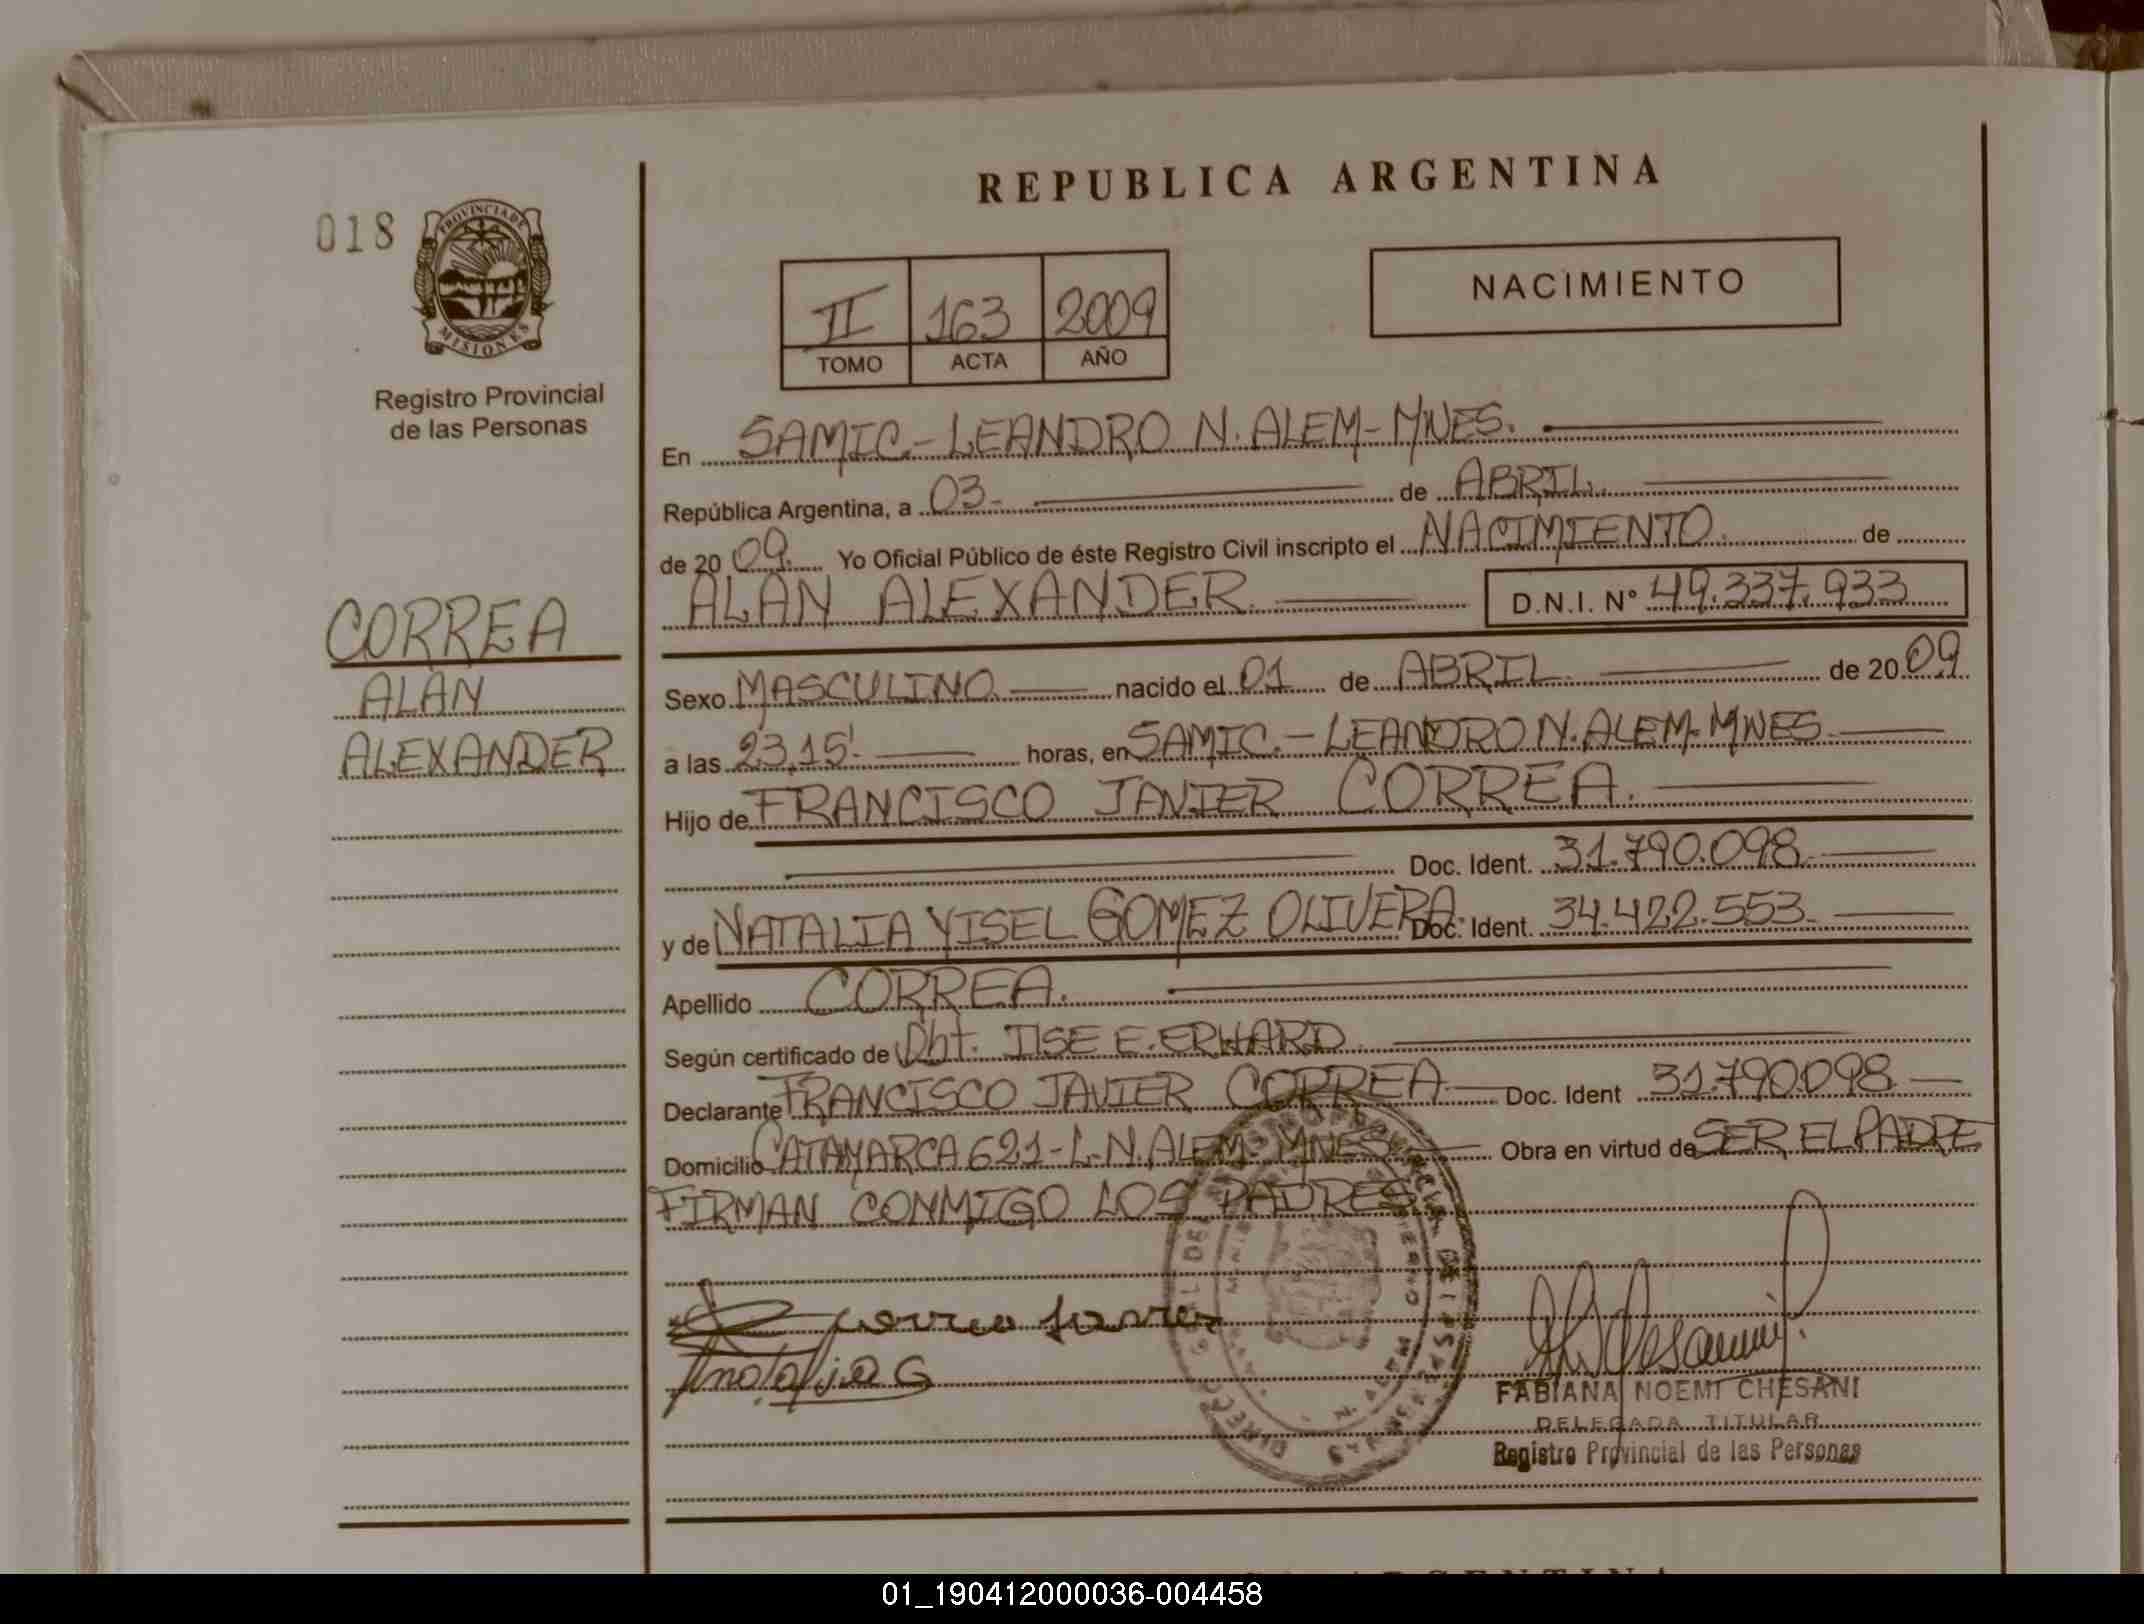 REPUBLICA ARGENTINA
018
PROVINCIA DE
MISIONES
Registro Provincial
de las Personas
II 163 2009
TOMO ACTA AÑO
NACIMIENTO
CORREA
ALAN
ALEXANDER
En SAMIC-LEANDRO N. ALEM-MNES.
República Argentina, a 03- de ABRIL.
de 20 09. Yo Oficial Público de éste Registro Civil inscripto el NACIMIENTO. de
ALAN ALEXANDER. D.N.I. Nº 49.337.933
Sexo MASCULINO nacido el 01 de ABRIL. de 20 09.
a las 23,15'. horas, en SAMIC.-LEANDRO N. ALEM-MNES
Hijo de FRANCISCO JAVIER CORREA.
Doc. Ident. 31.790.098.
y de NATALIA YISEL GOMEZ OLIVERA. Doc. Ident. 34.422.553.
Apellido CORREA.
Según certificado de Obt. ILSE E. ERHARD.
Declarante FRANCISCO JAVIER CORREA Doc. Ident 31.790.098
Domicilio CATAMARCA 621-L.N. ALEM-MNES Obra en virtud de SER EL PADRE
FIRMAN CONMIGO LOS PADRES
natalia G
FABIANA NOEMI CHESANI
DELEGADA TITULAR
Registro Provincial de las Personas
01_190412000036-004458